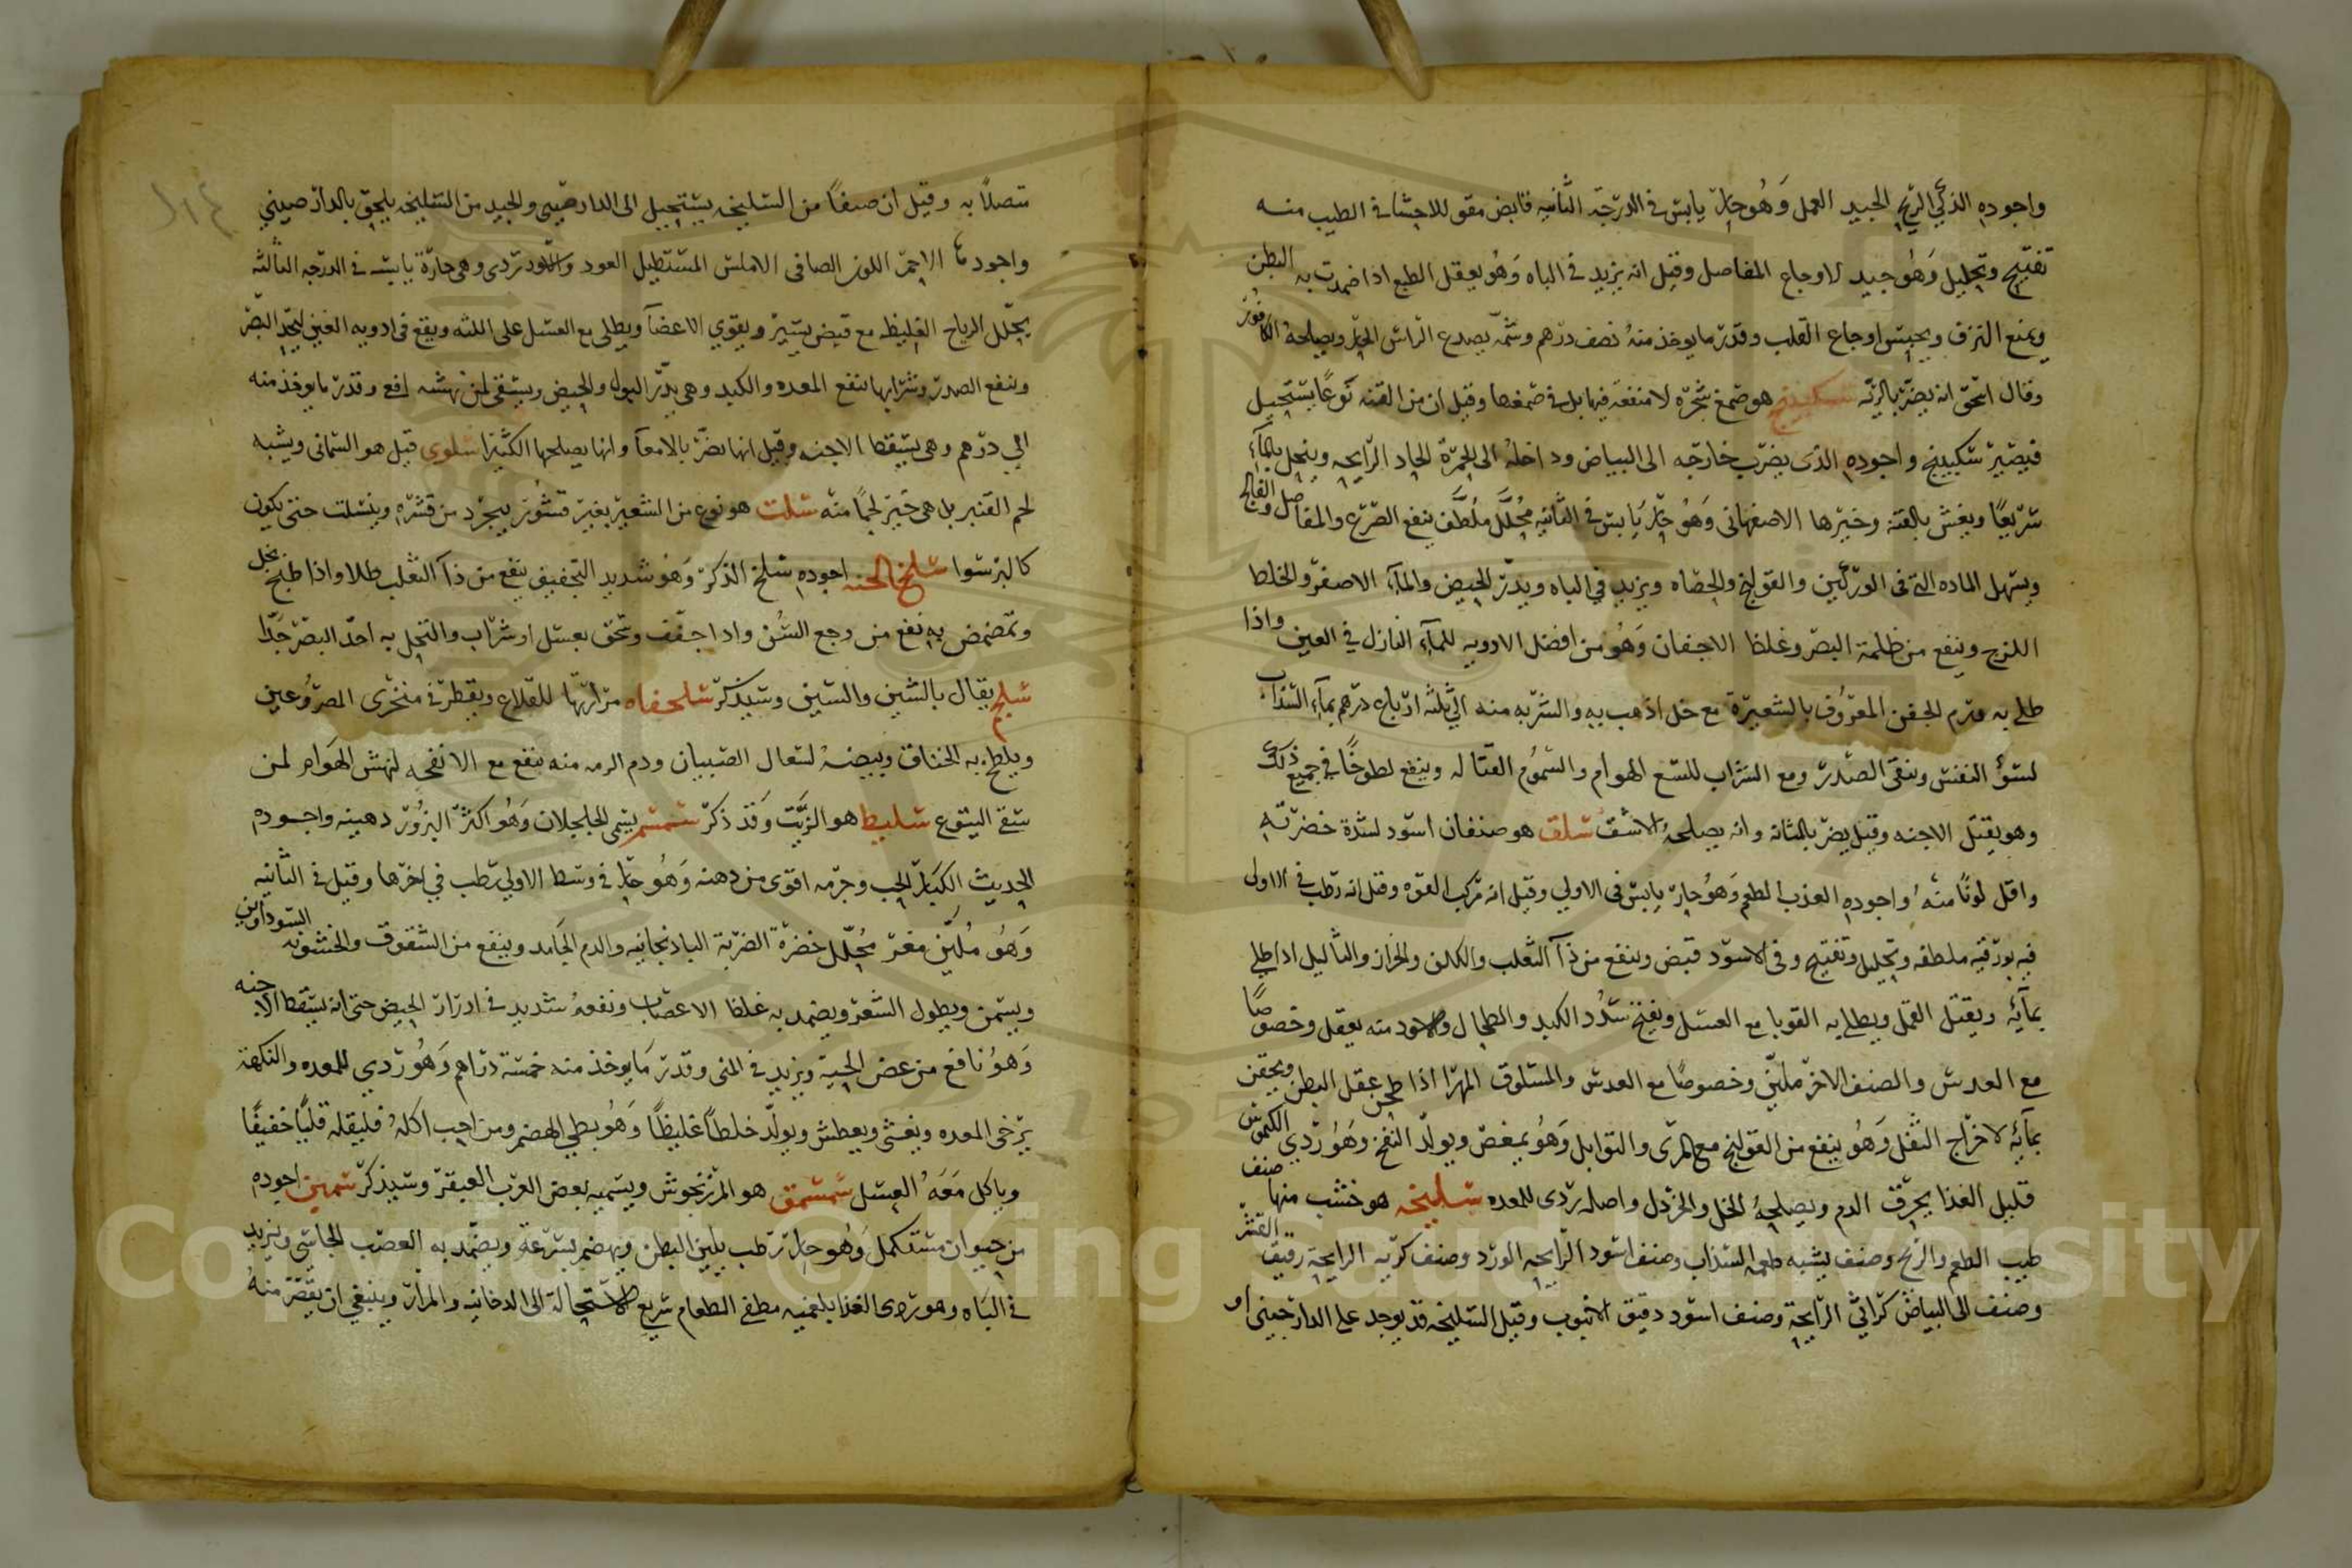 واجوده الذكي الريح الجيد العمل وهو حار يابس في الدرجة الثانيه قابض مقو للاحشا في الطيب منه
تفتيح وتحليل وهو جيد لاوجاع المفاصل وقيل انه يزيد في الباه وهو يعقل الطبع اذا ضمدت به البطن
ويمنع النزف ويحبس اوجاع القلب وقدر ما يوخذ منه نصف درهم وشمه يصدع الراس الحار ويصلحه الكافور
وقال اسحق انه يضر بالريه سكبينج هو صمغ شجره لا منفعه فيها بل في صمغها وقيل ان من القنه نوعا يستحيل
فيصير سكبينج واجوده الذي يضرب خارجه الى البياض وداخله الى الحمرة الحاد الرايحه وينحل بالمآء
سريعا ويغش بالقنة وخيرها الاصفهاني وهو حار يابس في الثانيه محلل ملطف ينفع الصرع والمفاصل والفالج
ويسهل الماده التي في الوركين والقولنج والحصاه ويزيد في الباه ويدر الحيض والمآء الاصفر والخلط
اللزج وينفع من ظلمة البصر وغلظ الاجفان وهو من افضل الادويه للمآء النازل في العين واذا
طلي به ورم الجفن المعروف بالشعيرة مع خل اذهب به والشربه منه الي ثلثه ارباع درهم بمآء السذاب
لسؤ النفس وينقي الصدر ومع الشراب للسع الهوام والسموم القتاله وينفع لطوخا في جميع ذلك
وهو يقتل الاجنه وقيل يضر بالمثانه وانه يصلحه الاشق سلق هو صنفان اسود لشدة خضرته
واقل لونا منه واجوده العذب الطعم وهو حار يابس في الاولي وقيل انه مركب القوه وقيل انه رطب في الاولى
فيه بورقيه ملطفه وتحليل وتفتيح وفي الاسود قبض وينفع من دآ الثعلب والكلف والحزاز والثآليل اذا طلي
بمآيه ويقتل القمل ويطلي به القوبا مع العسل ويفتح سدد الكبد والطحال والاسود منه يعقل وخصوصا
مع العدس والصنف الاخر ملين وخصوصا مع العدس والمسلوق المهرا اذا طجن عقل البطن ويحقن
بمآيه لاخراج الثفل وهو ينفع من القولنج مع المرى والتوابل وهو يمغص ويولد النفخ وهو ردي الكيموس
قليل الغذا يحرق الدم ويصلحه الخل والخردل واصله ردى للمعده سليخه هو خشب منها صنف
طيب الطعم والريح وصنف يشبه طعمه السذاب وصنف اسود الرايحه الورد وصنف كريه الرايحة رقيق القشر
وصنف الى البياض كراثي الرايحة وصنف اسود دقيق الانبوب وقيل السليخه قد يوجد على الدارصيني او
متصلا به وقيل ان صنفا من السليخه يستحيل الى الدارصيني والجيد من السليخه يلحق بالدارصيني
واجودها الاحمر اللون الصافي الاملس المستطيل العود والاسود ردي وهي حارة يابسه في الدرجه الثالثه
يحلل الرياح الغليظه مع قبض يسير ويقوي الاعضآ ويطلى مع العسل على اللثه ويقع في ادويه العين ليحد البصر
وينفع الصدر وشرابها ينفع المعده والكبد وهي يدر البول والحيض ويسقى لمن نهشه افع وقدر ما يوخذ منه
الي درهم وهي يسقط الاجنه وقيل انها يضر بالامعآ وانها يصلحها الكثيرا سلوى قيل هو السماني ويشبه
لحم القنبر بل هي خير لحما منه سلت هو نوع من الشعير بغير قشور يجرد من قشره وينسلت حتى يكون
كالبر سوا سلخ الحيه اجوده سلخ الذكر وهو شديد التجفيف ينفع من دآ الثعلب طلا واذا طبخ بخل
وتمضمض به نفع من وجع السن واذا جفف وسحق بعسل او شراب واكتحل به احد البصر جدا
سلجم يقال بالشين والسين وسيذكر سلحفاه مرارتها للقلاع ويقطر في منخرى المصروعين
ويلطخ به الخناق وبيضه لسعال الصبيان ودم البريه منه ينفع مع الانفحه لنهش الهوام لمن
سقي اليتوع سليط هو الزيت وقد ذكر سمسم يسمى الجلجلان وهو اكثر البزور دهنيه واجوده
الحديث الكبار الحب وجرمه اقوى من دهنه وهو حار في وسط الاولي رطب في اخرها وقيل في الثانيه
وهو ملين مغر محلل خضرة الضربة الباذنجانيه والدم الجامد وينفع من الشقوق والخشونه السوداوين
ويسمن ويطول الشعر ويضمد به غلظ الاعصاب ونفعه شديد في ادرار الحيض حتى انه يسقط الاجنه
وهو نافع من عض الحية ويزيد في المني وقدر ما يوخذ منه خمسة دراهم وهو ردي للمعده والنكهة
يرخي المعده ويغثي ويعطش ويولد خلطا غليظا وهو بطي الهضم ومن احب اكله فليقله قليا خفيفا
وياكل معه العسل سمسق هو المرزنجوش ويسميه بعض العرب العبقر وسيذكر سمين اجوده
من حيوان مستكمل وهو حار رطب يلين البطن ويهضم بسرعة ويضمد به العصب الجاسي ويزيد
في الباه وهو ردي الغذا بلغميه مطفي الطعام سريع الاستحالة الى الدخانيه والمرار وينبغي ان يقتصر منه